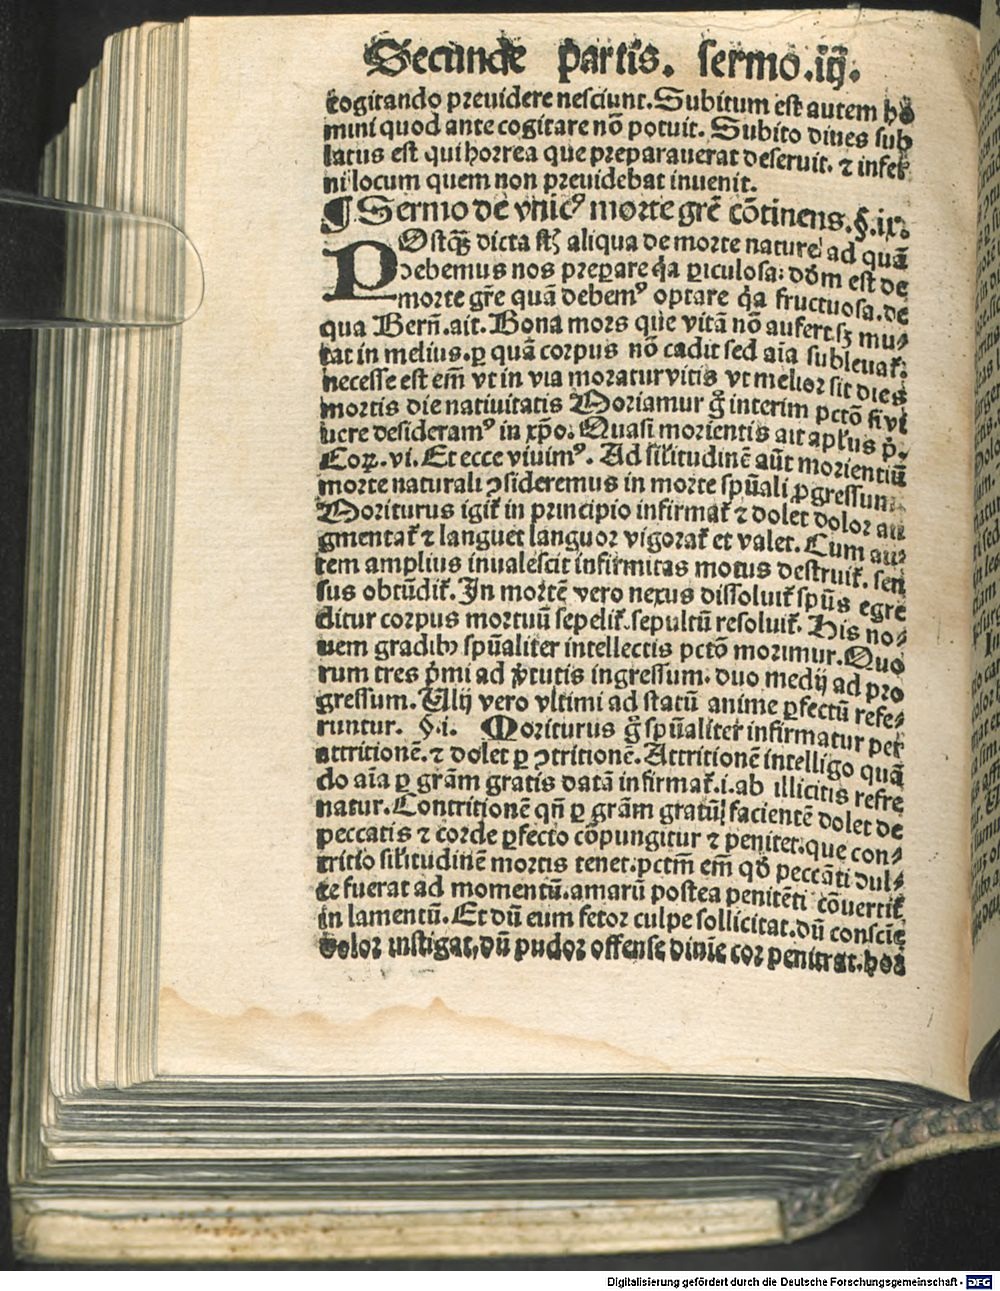 Secunde partis. sermo.iij.
cogitando preuidere nesciunt. Subitum est autem ho
mini quod ante cogitare nō potuit. Subito diues sub
latus est qui horrea que preparauerat deseruit. ⁊ infer
ni locum quem non preuidebat inuenit.
¶ Sermo de vnicꝰ morte grē cōtinens. §.ix.
POstqꝫ dicta sꝫ aliqua de morte nature ad quā
debemus nos preꝑare q̄a ꝑiculosa: dōm est de
morte gr̄e quā debemꝰ optare q̄a fructuosa. de
qua Bern̄. ait. Bona mors que vitā nō aufert. sꝫ mu⸗
tat in melius. ꝑ quā corpus nō cadit sed aīa subleuat᷑:
necesse est em̄ vt in via moratur vitis vt melior sit dies
mortis die natiuitatis Moriamur g̊ interim pctō si vi
uere desideramꝰ in xp̄o. Quasi morientis ait apl̄us p̄.
Coꝝ. vi. Et ecce viuimꝰ. Ad sil̄itudinē aūt morientiū
morte naturali ꝯsideremus in morte spūali ꝓgressum.
Moriturus igit᷑ in principio infirmat᷑ ⁊ dolet dolor au
gmentat᷑ ⁊ languet languor vigorat᷑ et valet. Cum au⸗
tem amplius inualescit infirmitas motus destruit᷑. sen
sus obtūdit᷑. In mortē vero nexus dissoluit᷑ spūs egre
ditur corpus mortuū sepelit᷑. sepultū resoluit᷑. His no⸗
uem gradibꝰ spūaliter intellectis pctō morimur. Quo
rum tres p̄mi ad v̓tutis ingressum: duo medij ad pro
gressum. Alij vero vltimi ad statū anime ꝑfectū refe⸗
runtur. §.i. Moriturus g̊ spūaliter infirmatur per
attritionē. ⁊ dolet ꝑ ꝯtritionē. Attritionē intelligo quā
do aīa ꝑ grām gratis datā infirmat᷑. i. ab illicitis refre
natur. Contritionē qn̄ ꝑ grām gratū facientē dolet de
peccatis ⁊ corde ꝑfecto cōpungitur ⁊ penitet. que con⸗
tritio sil̄itudinē mortis tenet. pctm̄ em̄ qd̄ peccāti dul⸗
ce fuerat ad momentū. amarū postea penitēti cōuertit᷑
in lamentū. Et dū eum fetor culpe sollicitat. dū conscīe
dolor instigat, dū pudor offense diuīe cor penitrat. hoꝛ
Digitalisierung gefördert durch die Deutsche Forschungsgemeinschaft - DFG